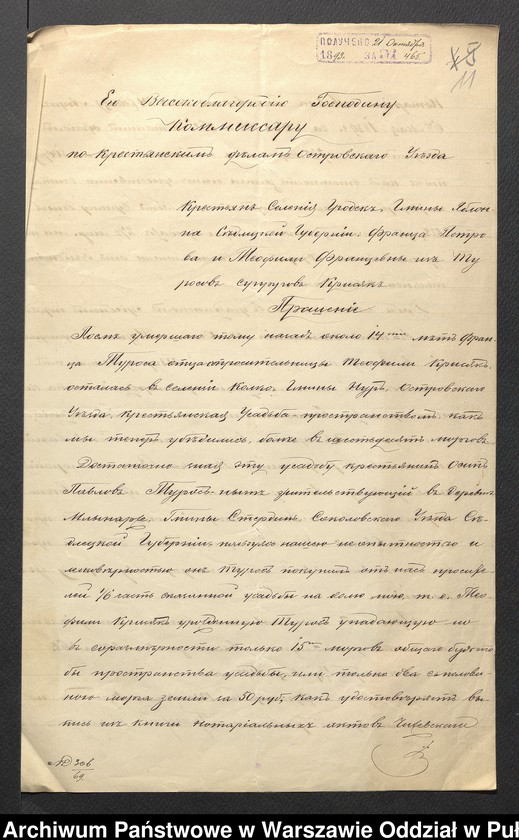 ПОЛУЧЕНО 21 Октября
1893. ЗА № 465
11
Его Высокоблагородію Господину
Коммисару
по Крестьянскимъ дѣламъ Островскаго Уѣзда
Крестьянъ Селенія Гродекъ, Гмины Яблон-
на Сѣдлецкой Губерніи, Франца Петро-
ва и Теофили Францовны изъ Ту
росовъ супруговъ Крысякъ
Прошеніе
Послѣ умершаго тому назадъ около 14 лѣтъ Фран-
ца Туроса отца просительницы Теофили Крысякъ
осталась въ селеніи Колко, Гмины Нуръ, Островскаго
Уѣзда, крестьянская усадьба пространствомъ, какъ
мы теперь убѣдились, болѣе въ шестьдесятъ морговъ
Достаточно зная эту усадьбу крестьянинъ Осипъ
Павловъ Туросъ нынѣ жительствующій въ деревнѣ
Млынарѣ, Гмины Стердынь, Соколовскаго Уѣзда Сѣ
длецкой Губерніи, пользуясь нашею неопытностью и
онъ Туросъ покупилъ отъ насъ просите
лей 1/6 часть сказанной усадьбы на долю мою, т. е. Тео-
фили Крысякъ урожденную Туросъ упадающую но
въ соразмѣрности только 15 морговъ общаго будто
бы пространства усадьбы, или только два съ полови-
ною морга земли за 50 руб. какъ удостовѣряетъ вы-
пись изъ книги нотаріальныхъ актовъ Чижевскаго
№ 306
69
Archiwum Państwowe w Warszawie Oddział w Puł